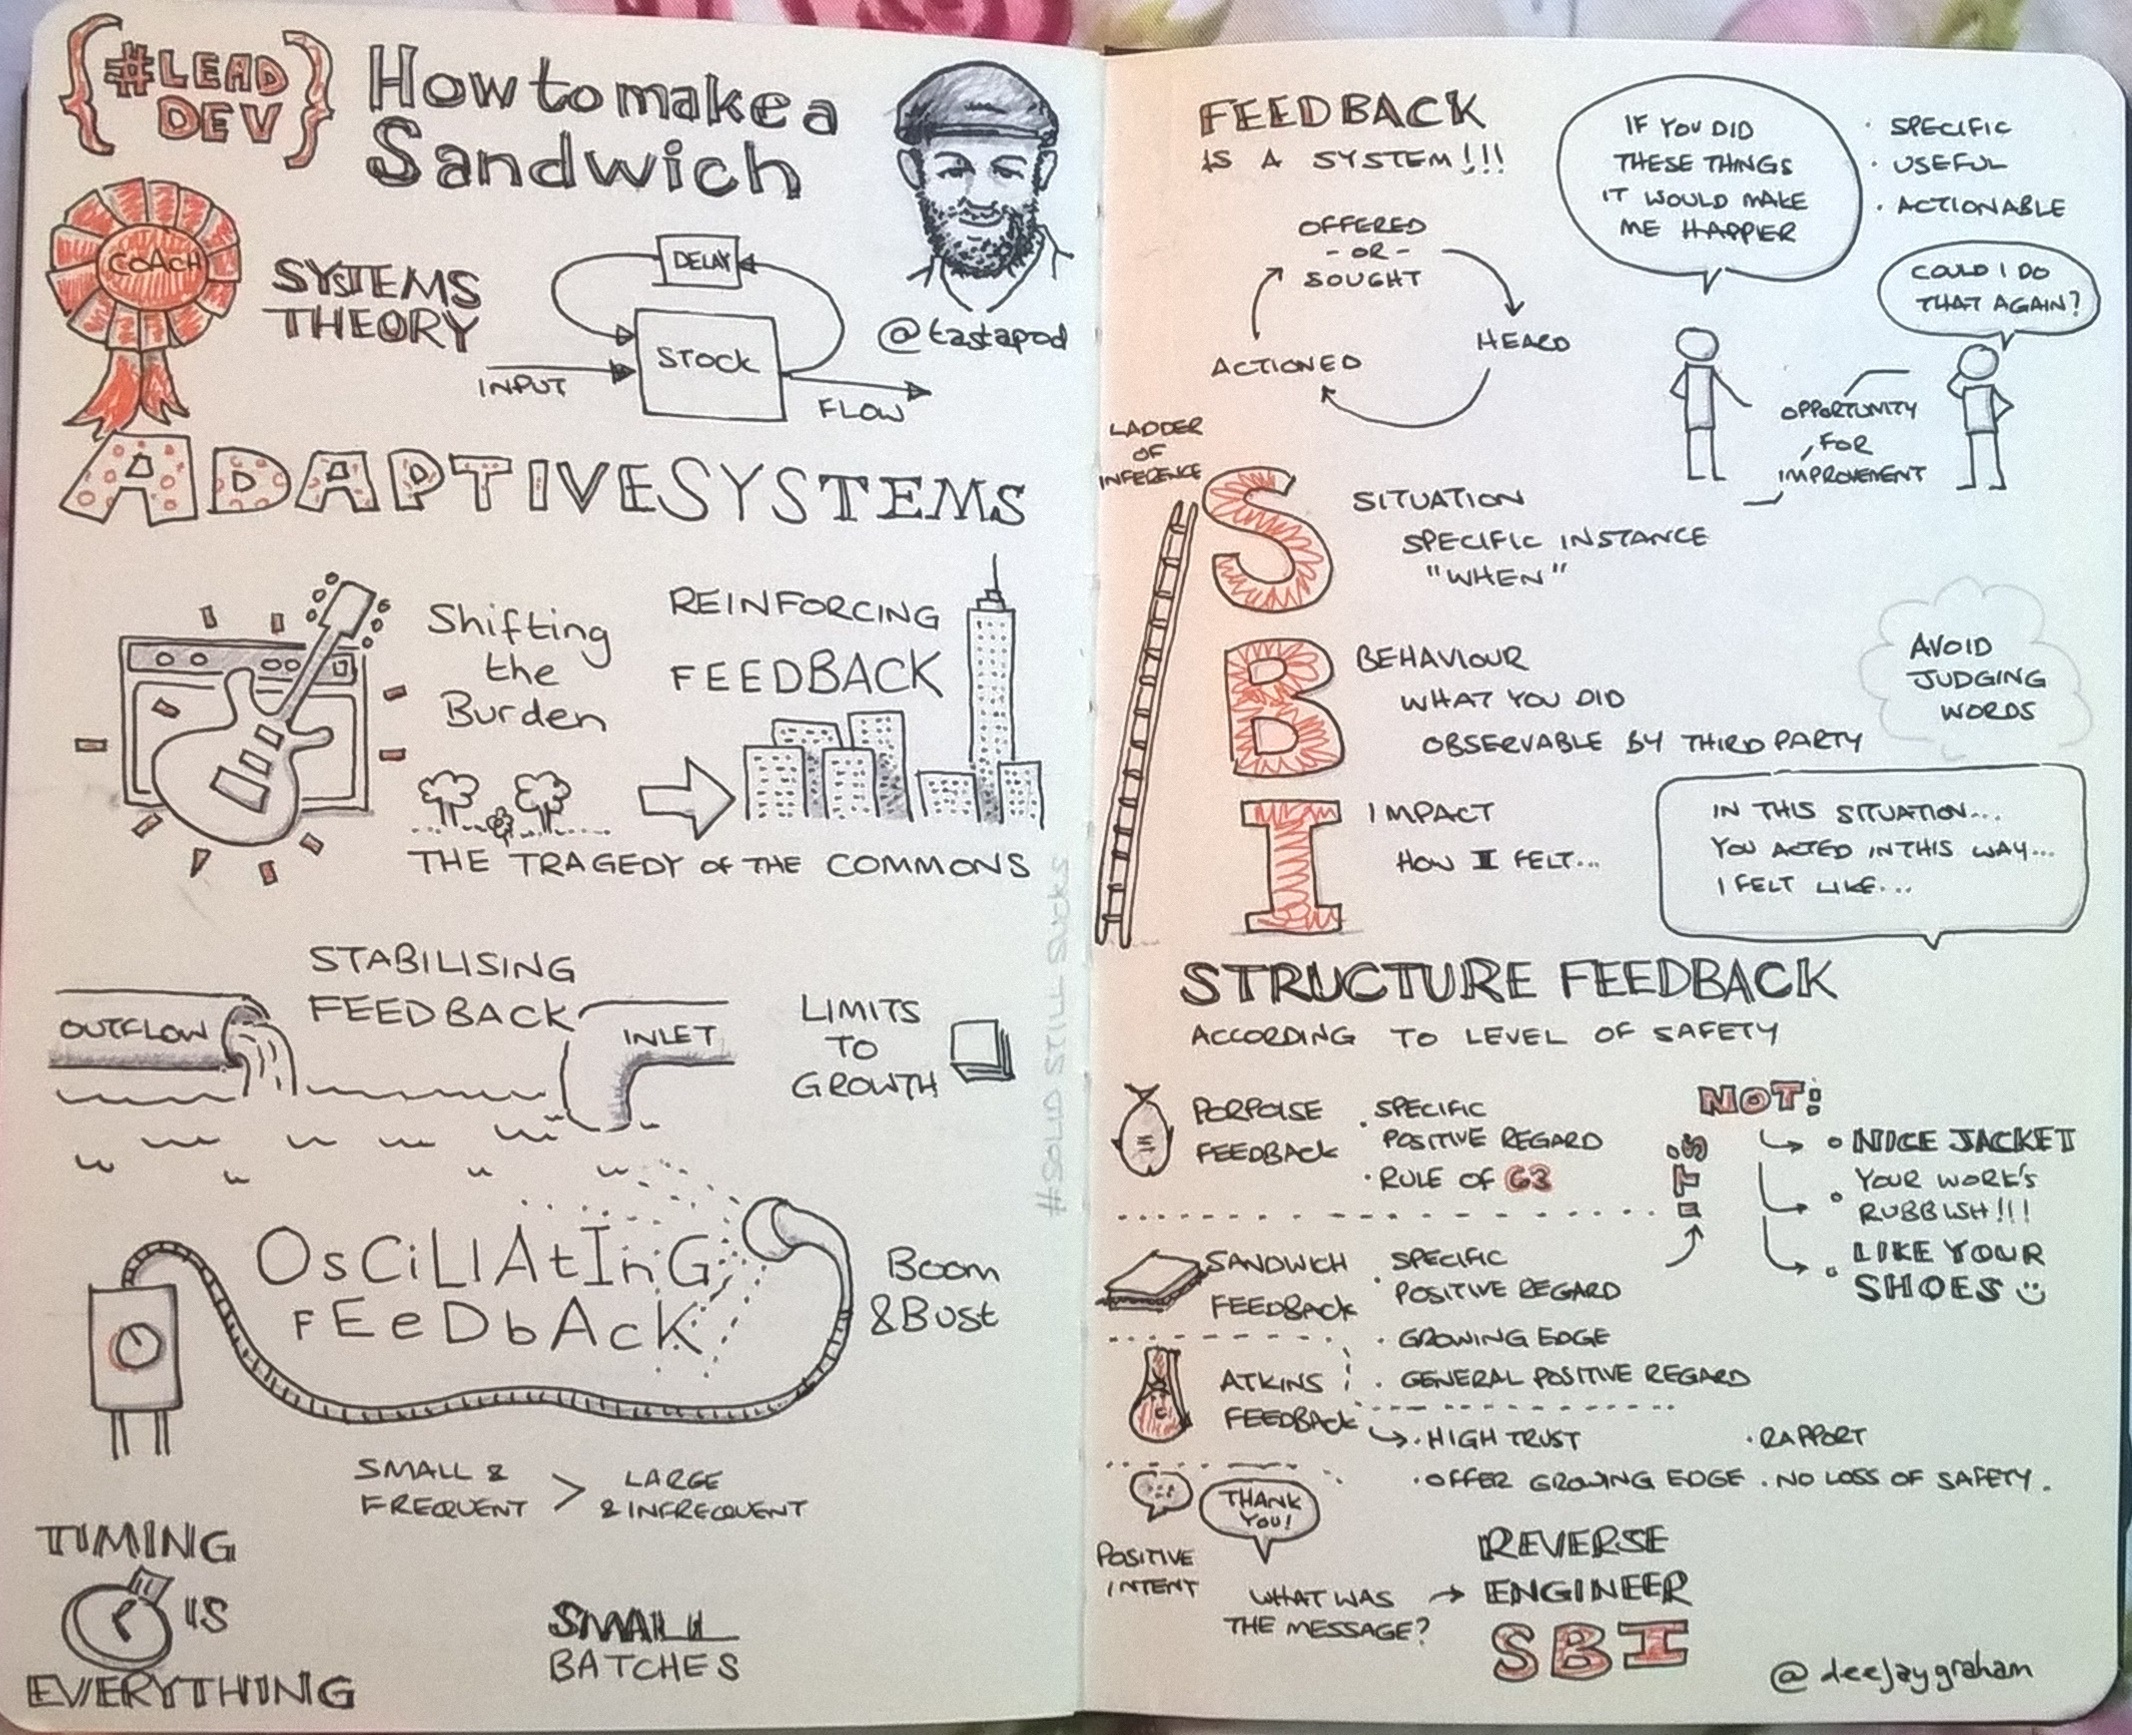 {#LEAD
DEV}
How to make a
Sandwich
COACH
SYSTEMS
THEORY
DELAY
STOCK
INPUT
FLOW
@tastapod
ADAPTIVE SYSTEMS
Shifting
the
Burden
REINFORCING
FEEDBACK
THE TRAGEDY OF THE COMMONS
STABILISING
FEEDBACK
OUTFLOW
INLET
LIMITS
TO
GROWTH
#SOLID STILL SUCKS
OsCiLlAtInG
FEeDbAcK
Boom
&Bust
SMALL &
FREQUENT
>
LARGE
& INFREQUENT
TIMING
IS
EVERYTHING
SMALL
BATCHES
FEEDBACK
IS A SYSTEM!!!
OFFERED
- OR -
SOUGHT
HEARD
ACTIONED
IF YOU DID
THESE THINGS
IT WOULD MAKE
ME HAPPIER
· SPECIFIC
· USEFUL
· ACTIONABLE
COULD I DO
THAT AGAIN?
OPPORTUNITY
FOR
IMPROVEMENT
LADDER
OF
INFERENCE
S
SITUATION
SPECIFIC INSTANCE
"WHEN"
B
BEHAVIOUR
WHAT YOU DID
OBSERVABLE BY THIRD PARTY
AVOID
JUDGING
WORDS
I
IMPACT
HOW I FELT...
IN THIS SITUATION...
YOU ACTED IN THIS WAY...
I FELT LIKE...
STRUCTURE FEEDBACK
ACCORDING TO LEVEL OF SAFETY
PORPOISE
FEEDBACK
· SPECIFIC
POSITIVE REGARD
· RULE OF G3
NOT:
· NICE JACKET
· YOUR WORK'S
RUBBISH!!!
· LIKE YOUR
SHOES
SANDWICH
FEEDBACK
· SPECIFIC
POSITIVE REGARD
· GROWING EDGE
· GENERAL POSITIVE REGARD
ATKINS
FEEDBACK
· HIGH TRUST
· RAPPORT
· OFFER GROWING EDGE
· NO LOSS OF SAFETY.
THANK
YOU!
POSITIVE
INTENT
WHAT WAS
THE MESSAGE?
REVERSE
ENGINEER
SBI
@deejaygraham